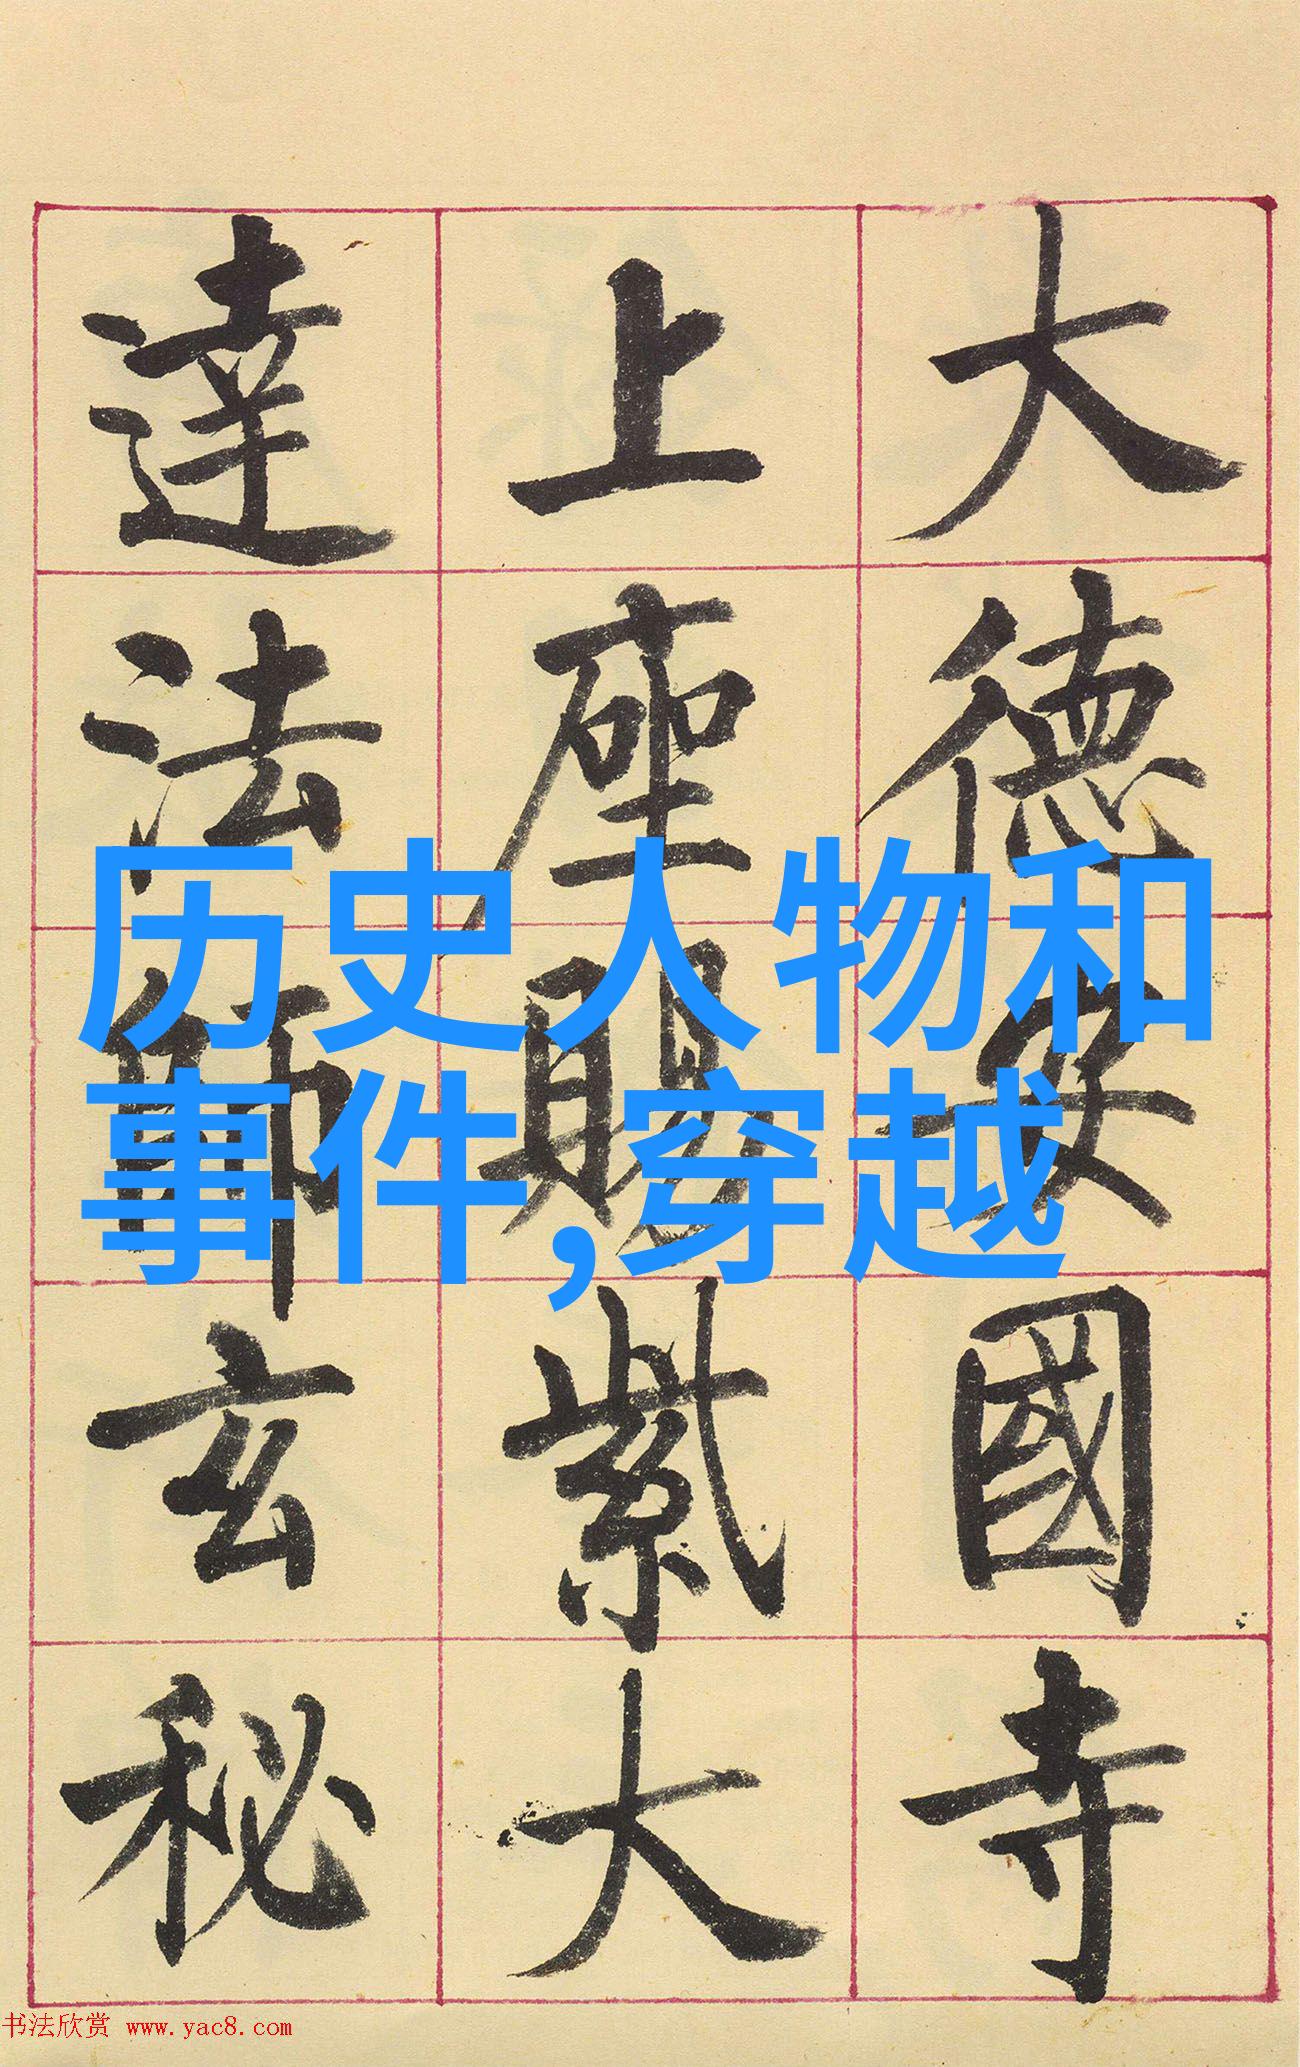 大德安國寺
上座賜紫大
達法師玄秘
历史人物和
事件,穿越
书法欣赏 www.yac8.com